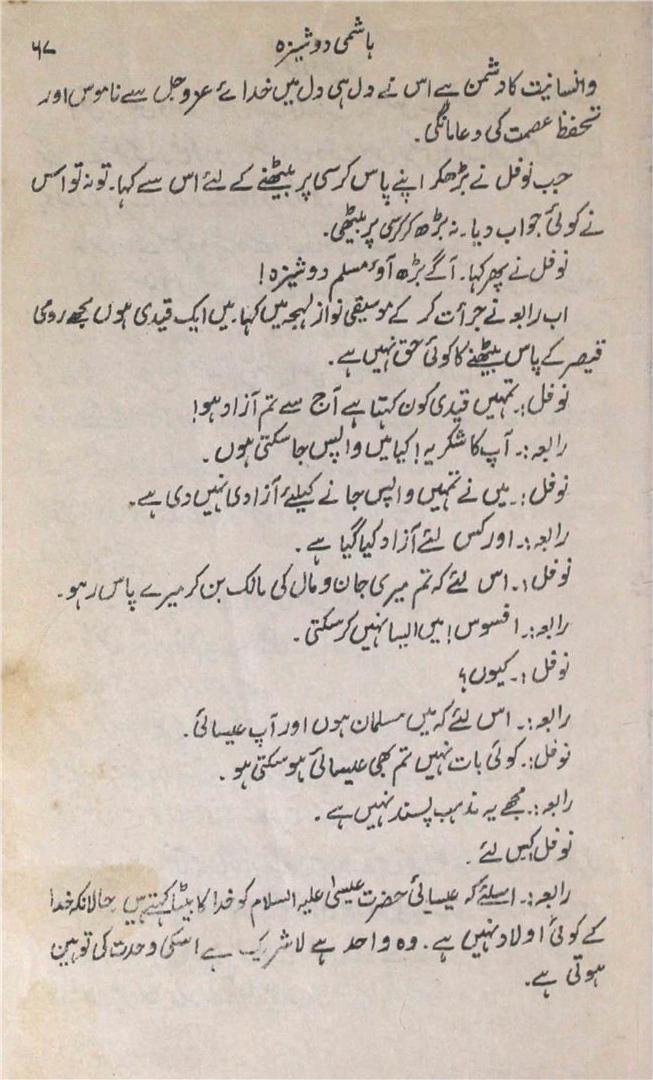 ہاشمی دوشیزہ
۶۷
وانسانیت کا دشمن ہے اس نے دل ہی دل میں خدائے عزوجل سے ناموس اور
تحفظ عصمت کی دعا مانگی۔
جب نوفل نے بڑھکر اپنے پاس کرسی پر بیٹھنے کے لئے اس سے کہا۔ تو نہ تو اس
نے کوئی جواب دیا۔ نہ بڑھ کر کرسی پر بیٹھی۔
نوفل نے پھر کہا۔ آگے بڑھ آؤ مسلم دوشیزہ!
اب رابعہ نے جرأت کر کے موسیقی نواز لہجہ میں کہا۔ میں ایک قیدی ہوں مجھے رومی
قیصر کے پاس بیٹھنے کا کوئی حق نہیں ہے۔
نوفل:۔ تمہیں قیدی کون کہتا ہے آج سے تم آزاد ہو!
رابعہ:۔ آپ کا شکریہ! کیا میں واپس جا سکتی ہوں۔
نوفل:۔ میں نے تمہیں واپس جانے کیلئے آزادی نہیں دی ہے۔
رابعہ:۔ اور کس لئے آزاد کیا گیا ہے۔
نوفل:۔ اس لئے کہ تم میری جان و مال کی مالک بن کر میرے پاس رہو۔
رابعہ:۔ افسوس! میں ایسا نہیں کر سکتی۔
نوفل:۔ کیوں؟
رابعہ:۔ اس لئے کہ میں مسلمان ہوں اور آپ عیسائی۔
نوفل:۔ کوئی بات نہیں تم بھی عیسائی ہو سکتی ہو۔
رابعہ:۔ مجھے یہ مذہب پسند نہیں ہے۔
نوفل:۔ کس لئے۔
رابعہ:۔ اسلئے کہ عیسائی حضرت عیسیٰ علیہ السلام کو خدا کا بیٹا کہتے ہیں حالانکہ خدا
کے کوئی اولاد نہیں ہے۔ وہ واحد ہے لا شریک ہے اسکی وحدت کی توہین
ہوتی ہے۔